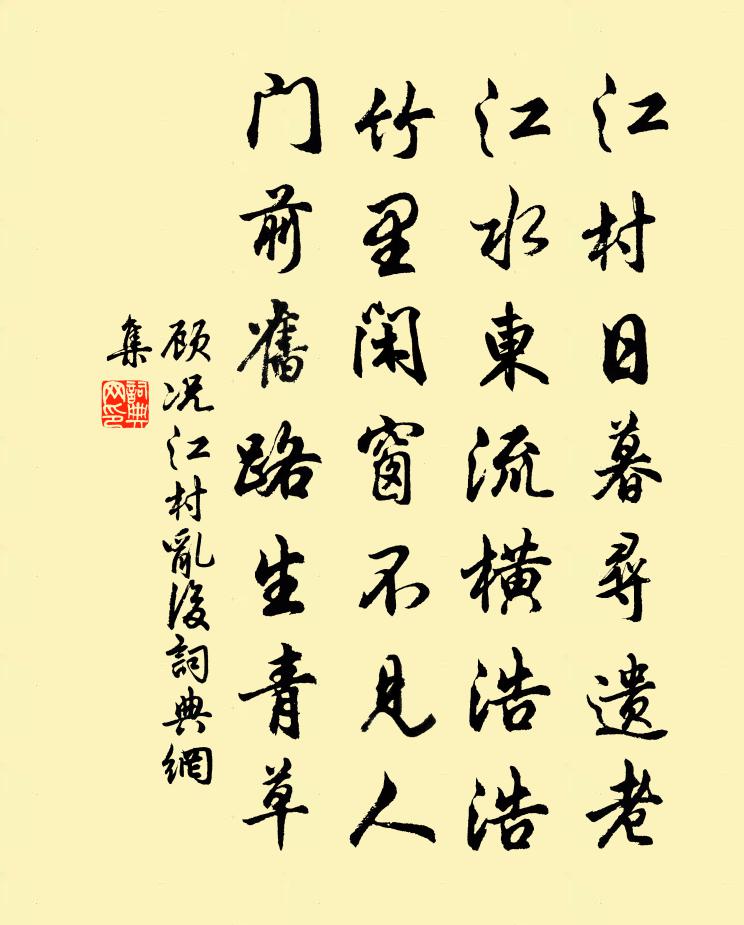 江村日暮尋遗老
江水東流横浩浩
竹里闲窗不见人
门前舊路生青草
顾况江村亂後詞典網
集
詞典網印